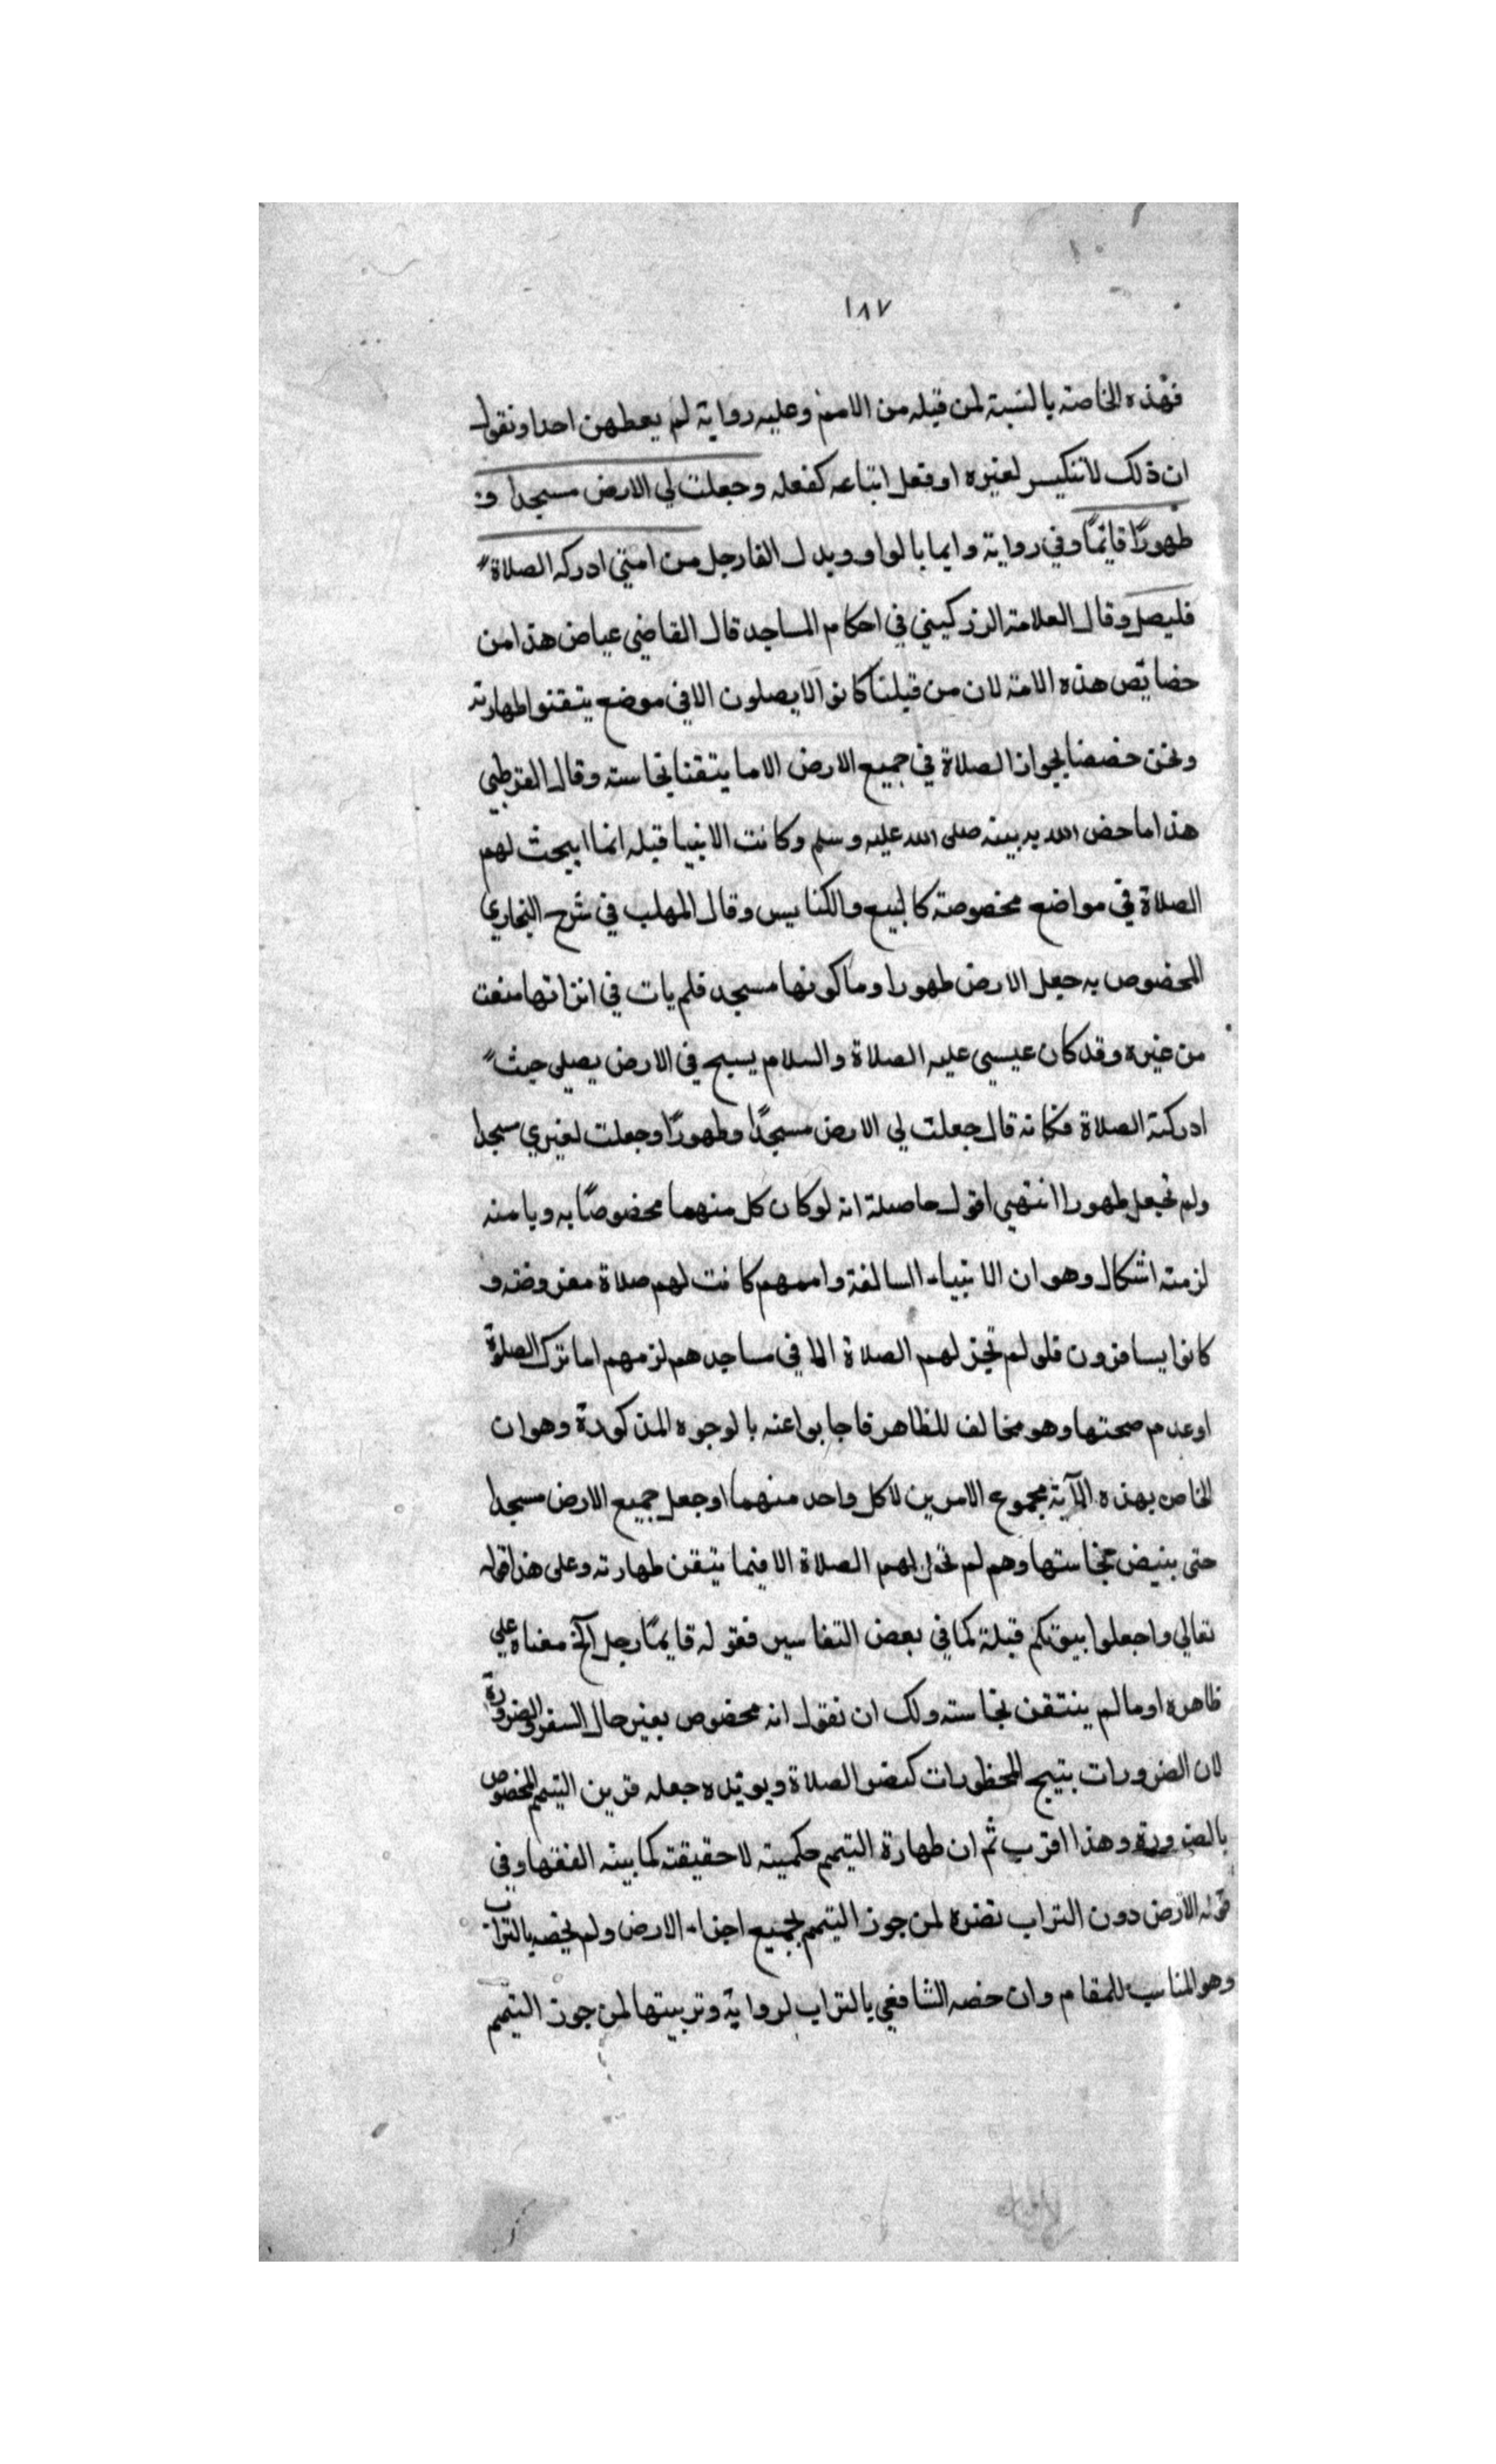 ١٨٧
فهذه الخاصة بالنسبة لمن قبله من الامم وعليه رواية لم يعطهن احدا ونقول
ان ذلك لا تنكيسر لغيره او فعل اتباعه كفعله وجعلت لي الارض مسجدا و
طهورًا قائمًا وفي رواية وايما بالواو وبدل الفا رجل من امتي ادركه الصلاة
فليصل وقال العلامة الزركيشي في احكام المساجد قال القاضي عياض هذا من
خصايص هذه الامة لان من قبلنا كانوا لا يصلون الا في موضع يتقنوا طهارته
ونحن خصصنا بجواز الصلاة في جميع الارض الا ما يتقنا نجاسته وقال القرطبي
هذا ما خص الله به نبيه صلى الله عليه وسلم وكانت الانبيا قبله انما ابيحت لهم
الصلاة في مواضع مخصوصة كالبيع والكنايس وقال المهلب في شرح البخاري
المخصوص به جعل الارض طهورا وما كونها مسجد فلم يات في انزاتها منعت
من غيره وقد كان عيسى عليه الصلاة والسلام يسيح في الارض يصلي حيث
ادركته الصلاة فكانه قال جعلت لي الارض مسجدًا وطهورًا وجعلت لغيري مسجدا
ولم تجعل طهورا انتهى اقول حاصلة انه لو كان كل منهما مخصوصًا به وبامته
لزمته اشكال وهو ان الانبياء السالفة واممهم كانت لهم صلاة مفروضة و
كانوا يسافرون فلو لم تجز لهم الصلاة الا في مساجدهم لزمهم اما ترك الصلوة
او عدم صحتها وهو مخالف للظاهر فاجابوا عنه بالوجوه المذكورة وهو ان
الخاص بهذه الآية مجموع الامرين لا كل واحد منهما او جعل جميع الارض مسجدا
حتى نجاستها وهم لم تحل لهم الصلاة الا فيما يتيقن طهارته وعلى هذا قوله
تعالي واجعلوا بيوتكم قبلة كما في بعض التفاسير فقوله قايمًا رجل الخ معناه علي
ظاهره او ما لم ينتقن نجاسته ولك ان نقول انه مخصوص بغير حال السفر والضرورة
لان الضرورات بتيح المحظورات الصلاة ويؤيده جعله قرين التيمم المخصوص
بالضرورة وهذا اقرب ثم ان طهارة التيمم حكمية لا حقيقته كما بينه الفقها وفي
قوله الارض دون التراب نضره لمن جوز التيمم بجميع اجزاء الارض ولم يخصه بالتراب
وهو المناسب للمقام وان خصه الشافعي بالتراب لرواية وتربيتها لمن جوز التيمم